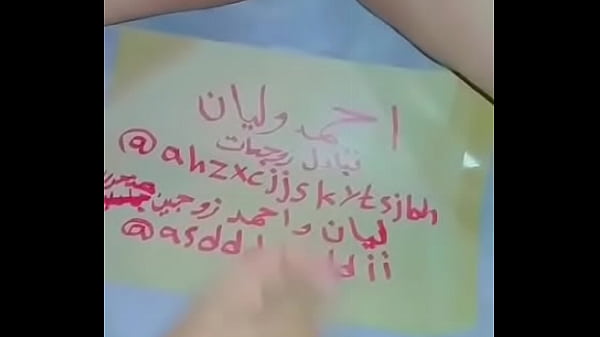 احمد وليان
تبادل زوجات
@ahzxcjjskytsjbh
ليان واحمد زوجين
@asdd